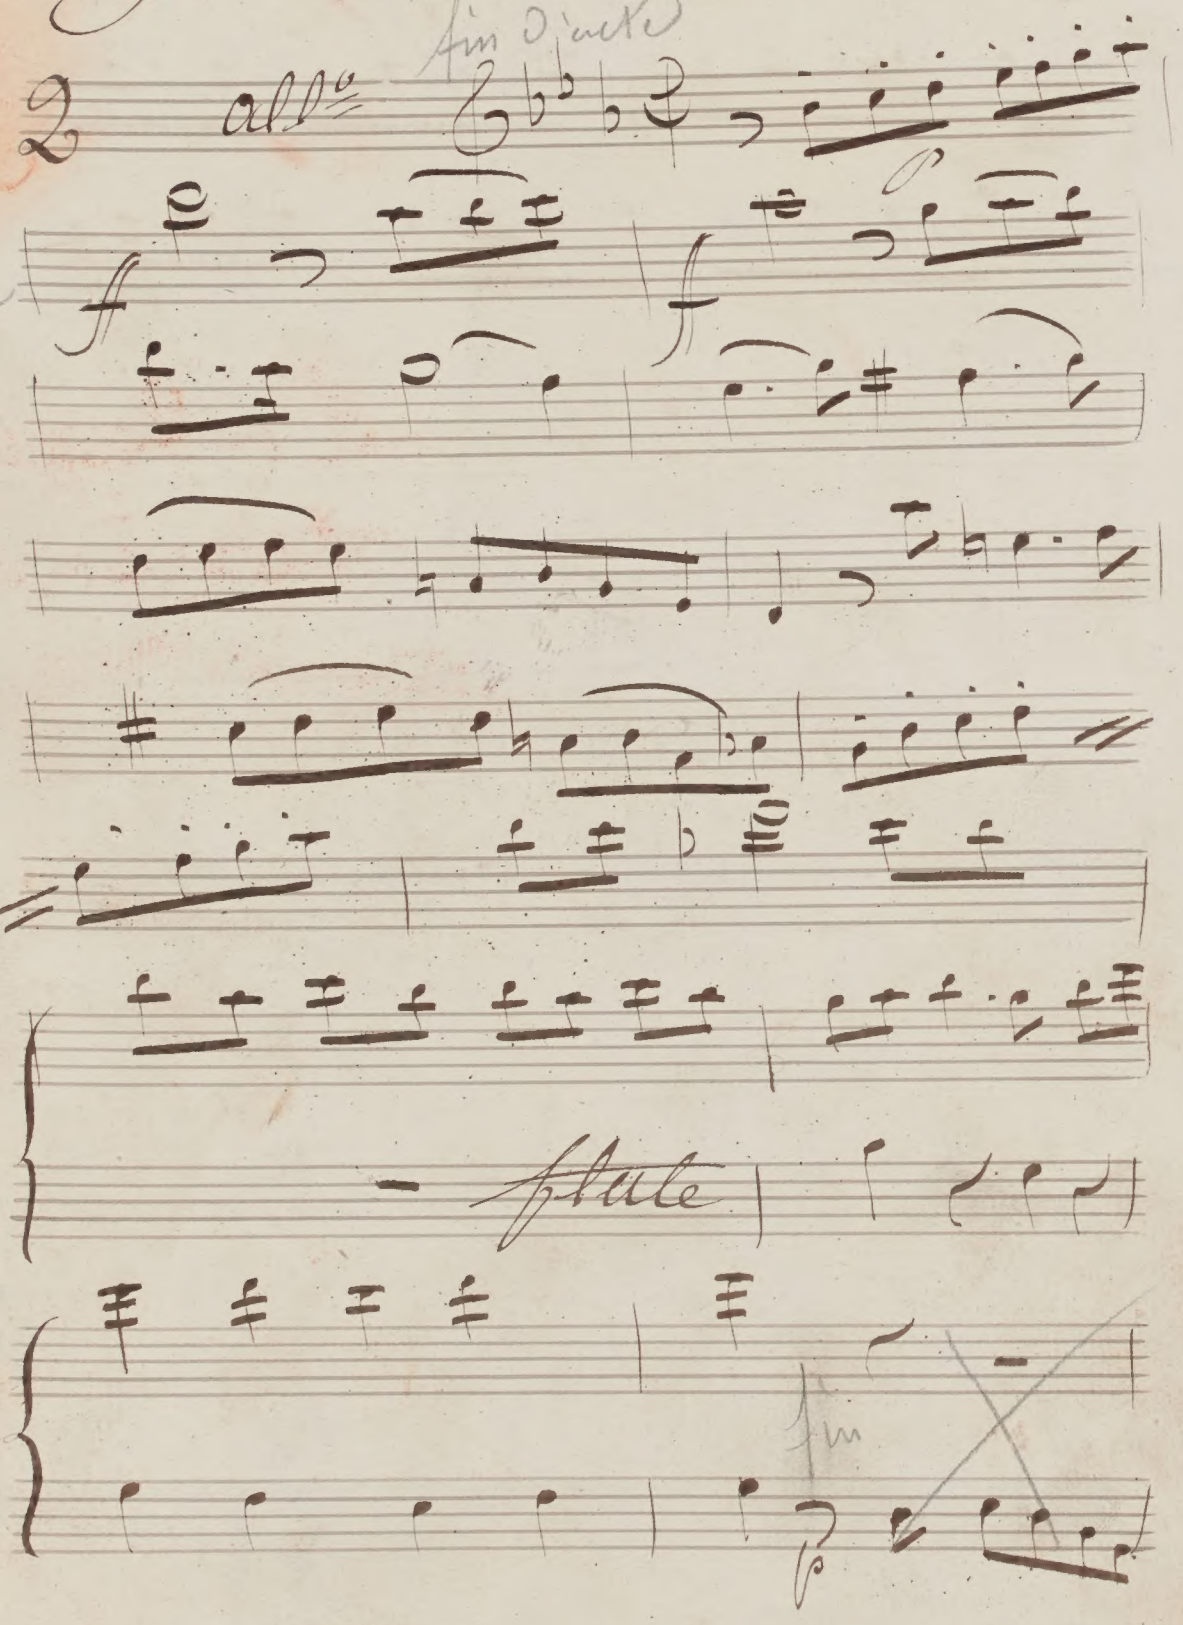 fin D'acte
2 allo
p
f f
flute
fin
p